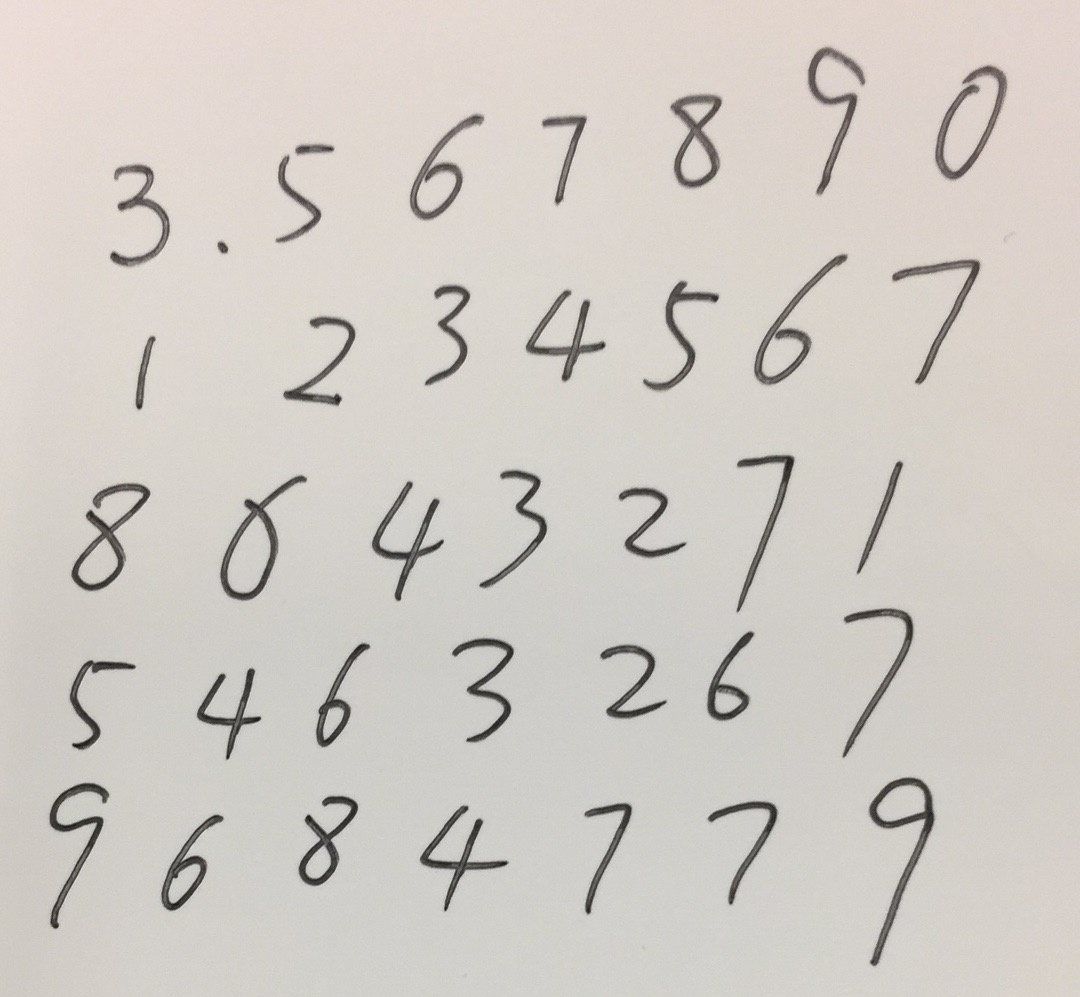 3.567890
1234567
8643271
5463267
9684779